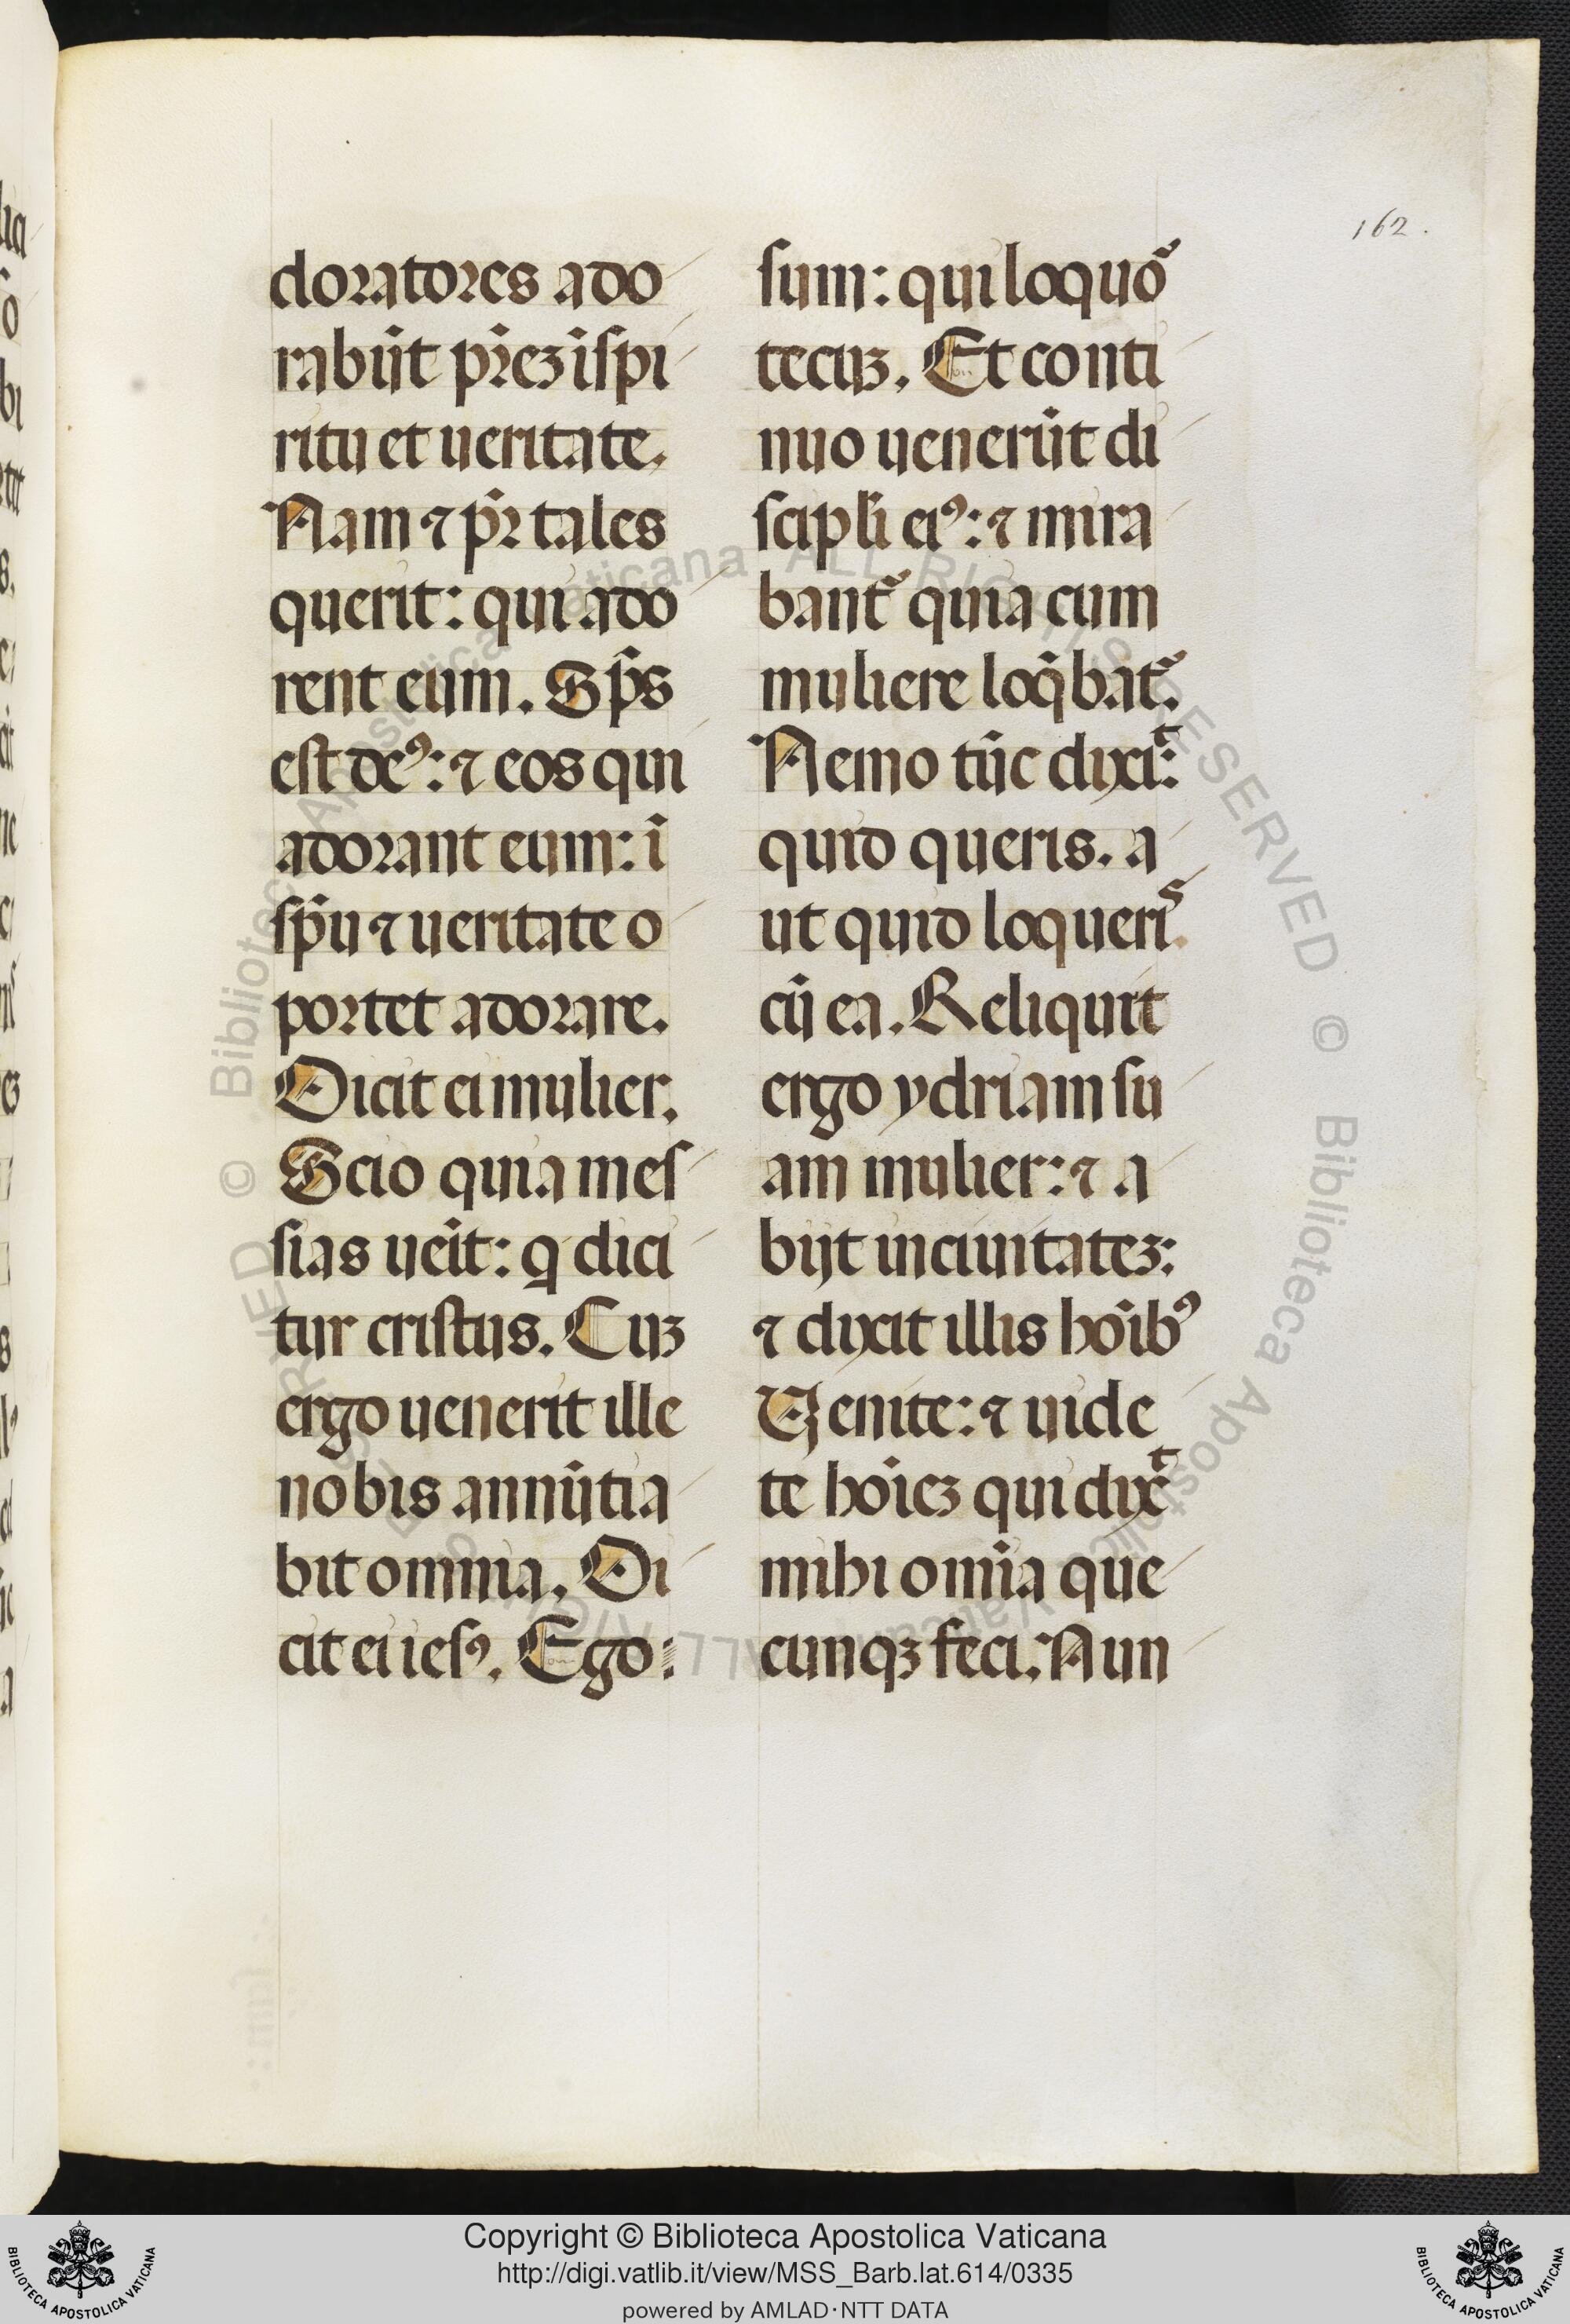 162.
doratores ado
rabūt pr̄eʒ ī spi
ritu et ueritate.
Nam ⁊ pr̄ tales
querit: qui ado
rent eum. Sp̄s
est deꝰ: ⁊ eos qui
adorant eum: ī
sp̄u ⁊ ueritate o
portet adorare.
Dicit ei mulier.
Scio quia mes
sias ueīt: q dici
tur cristus. Cuʒ
ergo uenerit ille
nobis annūtia
bit omnia. Di
cit ei iesꝰ. Ego:
sum: qui loquoᷣ
tecuʒ. Et conti
nuo uenerūt di
scipl̄i eiꝰ: ⁊ mira
bantᷣ quia cum
muliere loq̄batᷣ.
Nemo tūc dixiᵗ:
quid queris. a
ut quid loqueriˢ.
cū ea. Reliquit
ergo ydriam su
am mulier: ⁊ a
bijt in ciuitateʒ:
⁊ dixit illis hoīb⁹
Uenite: ⁊ uide
te hoīeʒ qui dixᵗ
mihi omīa que
cunqʒ feci. Nun
© Biblioteca Apostolica Vaticana ALL RIGHTS RESERVED © Biblioteca Apostolica Vaticana ALL RIGHTS RESERVED
Copyright © Biblioteca Apostolica Vaticana
http://digi.vatlib.it/view/MSS_Barb.lat.614/0335
powered by AMLAD·NTT DATA
BIBLIOTECA APOSTOLICA VATICANA
BIBLIOTECA APOSTOLICA VATICANA